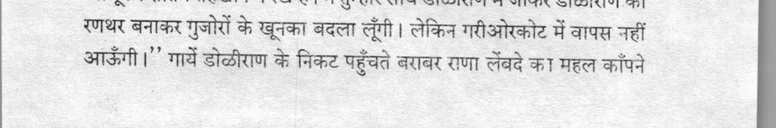 रणथर बनाकर गुजोरों के खूनका बदला लूँगी। लेकिन गरीओरकोट में वापस नहीं
आऊँगी।’’ गायें डोळीराण के निकट पहुँचते बराबर राणा लेंबदे का महल काँपने